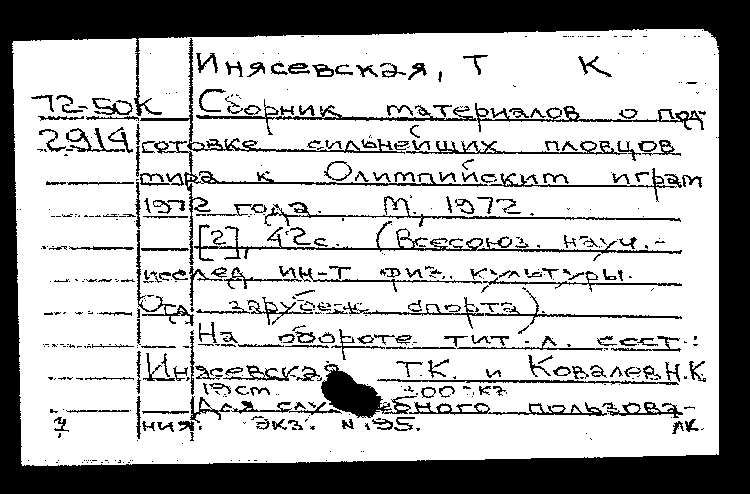 Инясевская, Т К
72-50К Сборник материалов о под-
2914 готовке сильнейших пловцов
мира к Олимпийским играм
1972 года. М., 1972.
[2], 42с. (Всесоюз. науч.-
исслед. ин-т физ. культуры.
Отд. зарубеж спорта)
На обороте тит. л. сост.:
Инясевская Т.К. и Ковалев Н.К
19см. 300экз
Для служебного пользова-
ния. Экз. №195.